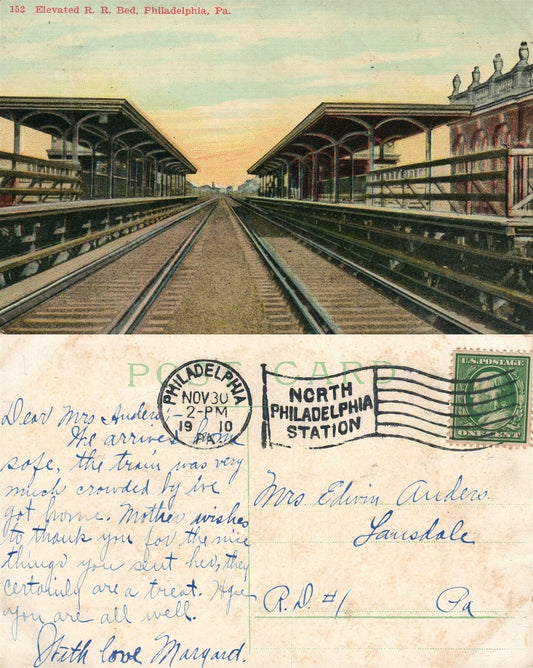 152 Elevated R. R. Bed, Philadelphia, Pa.
POST CARD
PHILADELPHIA
NOV 30
2-PM
1910
PA
NORTH
PHILADELPHIA
STATION
U.S. POSTAGE
ONE CENT
Dear Mrs Anders;-
We arrived home
safe, the train was very
much crowded by i've
got home. Mother wishes
to thank you for the nice
things you sent her, they
certainly are a treat. Hope
you are all well.
With love
Mrs. Edwin Anders.
Lansdale
R.D. #1 Pa